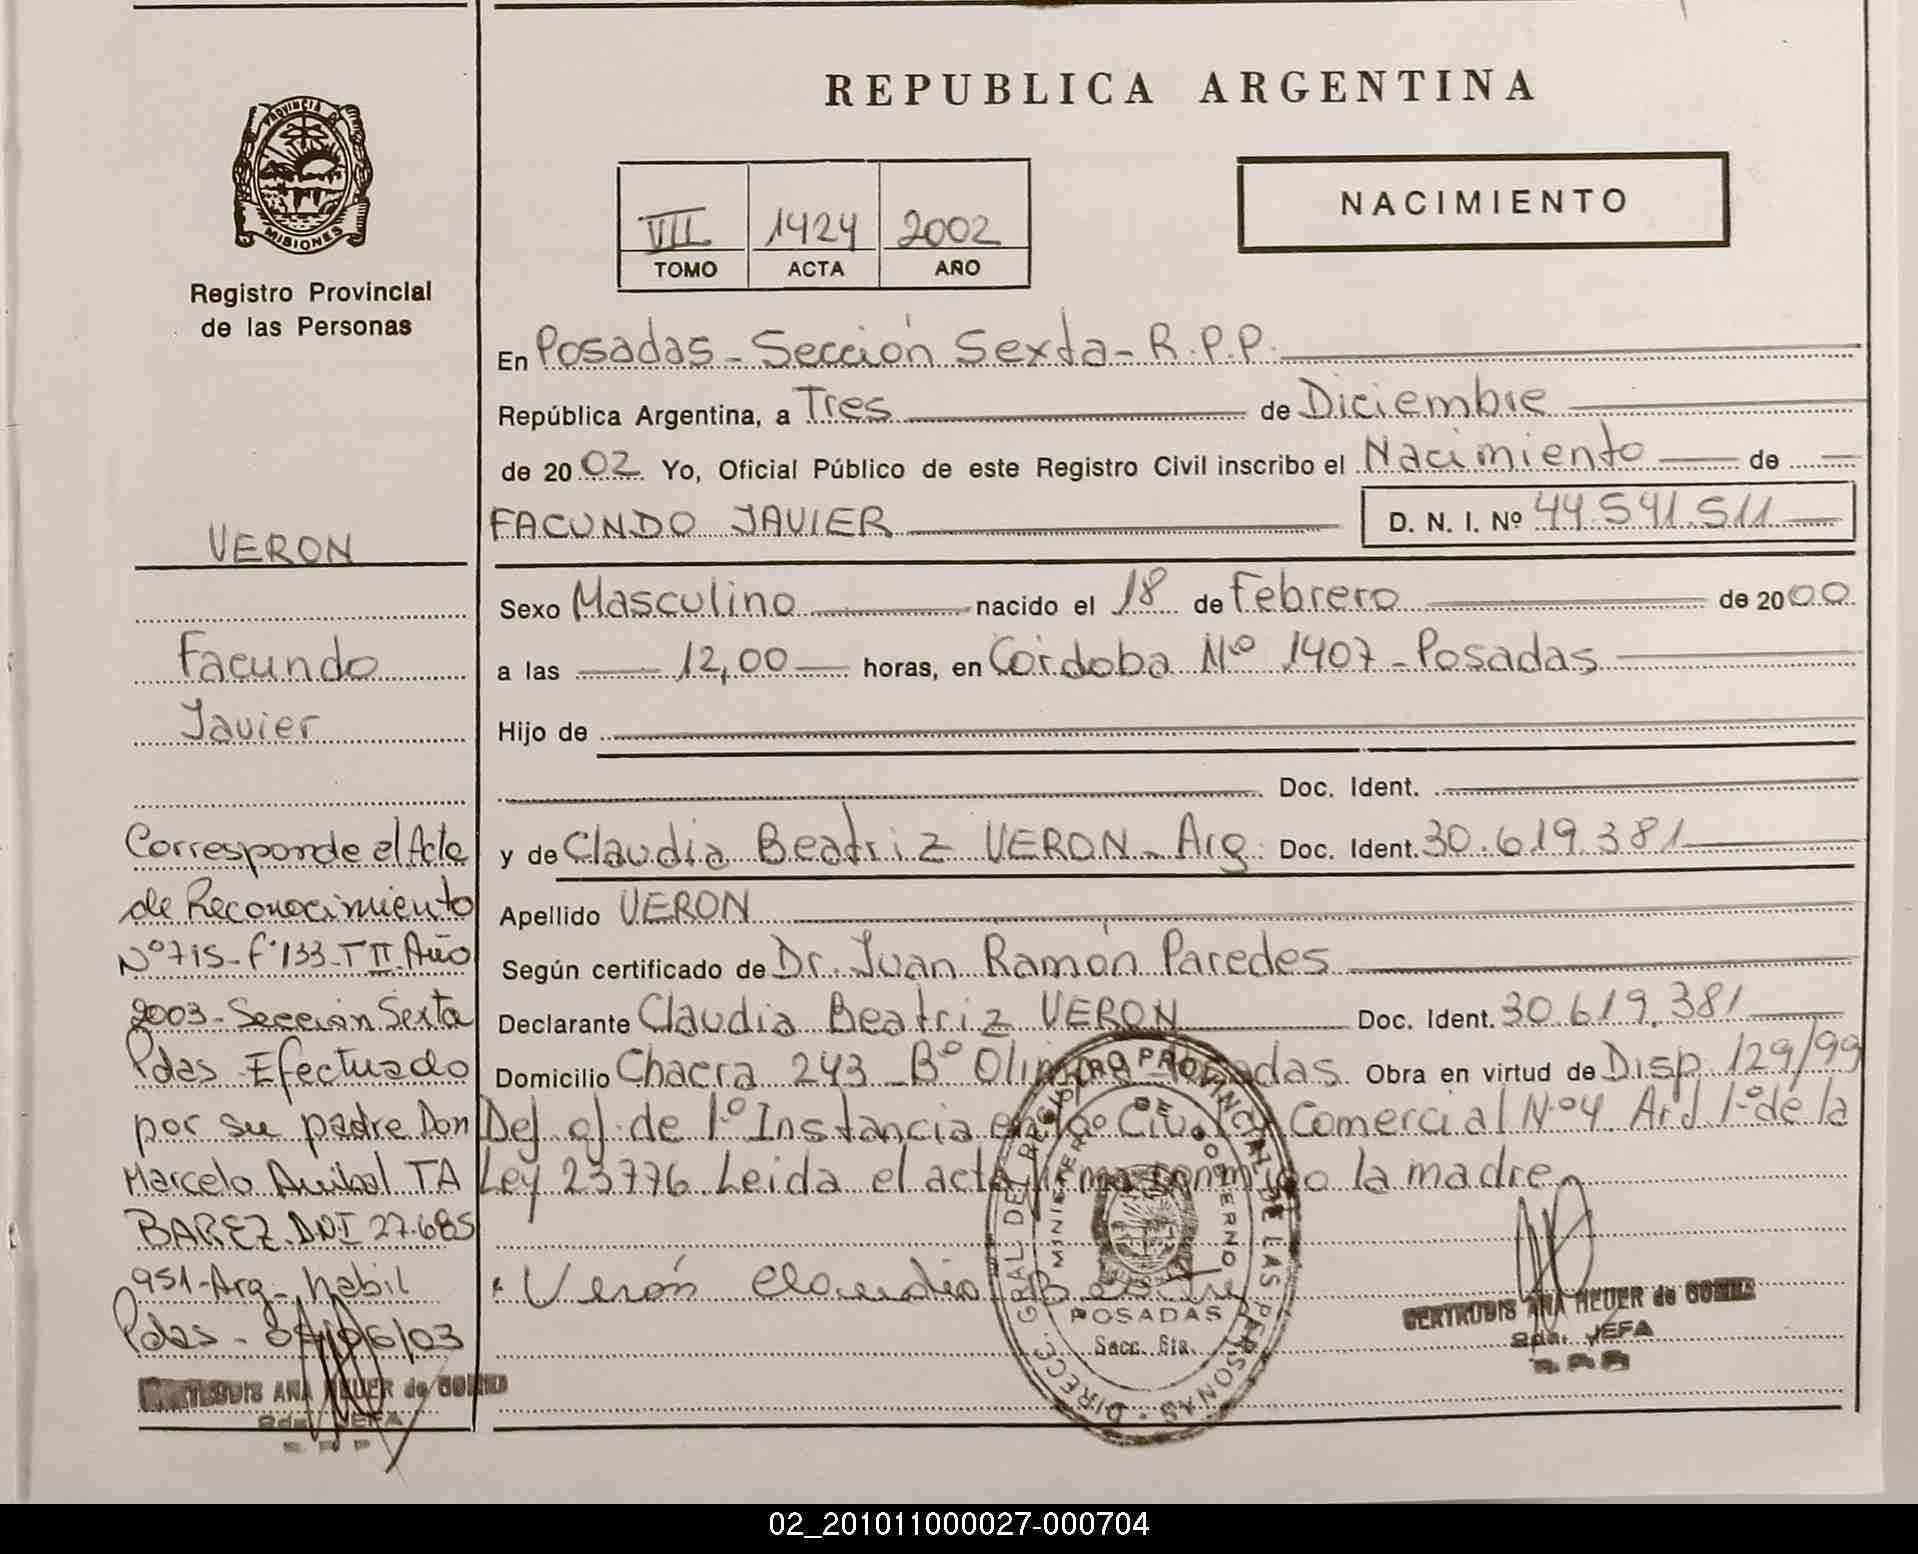 REPUBLICA ARGENTINA
PROVINCIA DE
MISIONES
Registro Provincial
de las Personas
VII 1424 2002
TOMO ACTA AÑO
NACIMIENTO
En Posadas - Sección Sexta - R.P.P.
República Argentina, a Tres de Diciembre
de 2002 Yo, Oficial Público de este Registro Civil inscribo el Nacimiento de
FACUNDO JAVIER D. N. I. Nº 44.541.511
Sexo Masculino nacido el 18 de Febrero de 2000
a las 12,00 horas, en Córdoba Nº 1407 - Posadas
Hijo de
Doc. Ident.
y de Claudia Beatriz VERON - Arg. Doc. Ident. 30.619.381
Apellido VERON
Según certificado de Dr. Juan Ramón Paredes
Declarante Claudia Beatriz VERON Doc. Ident. 30.619.381
Domicilio Chacra 243 - Bº Posadas. Obra en virtud de Disp. 129/99
Del de 1º Instancia en lo Civil y Comercial Nº 4 Ard. 1º de la
Ley 23776. Leida el acta firma conmigo la madre
Verón Claudia Beatriz
DIRECC. GRAL DEL REGISTRO PROVINCIAL DE LAS PERSONAS
MINISTERIO DE GOBIERNO
POSADAS
Secc. 6ta.
GERTRUDIS ANA HEUER de GOMEZ
2da. JEFA
VERON
Facundo
Javier
Corresponde el Acta
de Reconocimiento
Nº 715 - Fº 133 - T II Año
2003 - Sección Sexta
Pdas Efectuado
por su padre Don
Marcelo Anibal TA
BAREZ. DNI 27.685
951 - Arg - habil
Pdas - /06/03
GERTRUDIS ANA HEUER de GOMEZ
2da. JEFA
02_201011000027-000704